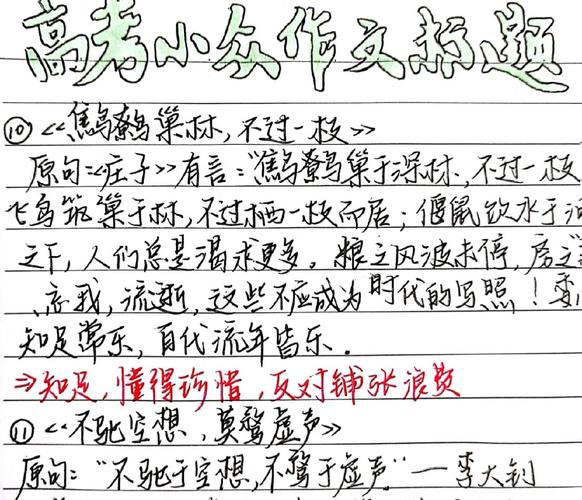 高考小众作文标题
⑩《鹪鹩巢林,不过一枝》
原句:《庄子》有言:"鹪鹩巢于深林,不过一枝
飞鸟筑巢于林,不过栖一枝而居;偃鼠饮水于河
之下,人们总是渴求更多。粮之风波未停,房之
忘我,流逝,这些不应成为时代的写照!
知足常乐,百代流年皆乐.
⇒知足,懂得珍惜,反对铺张浪费
⑪《不驰空想,莫骛虚声》
原句:"不驰于空想,不骛于虚声"—李大钊